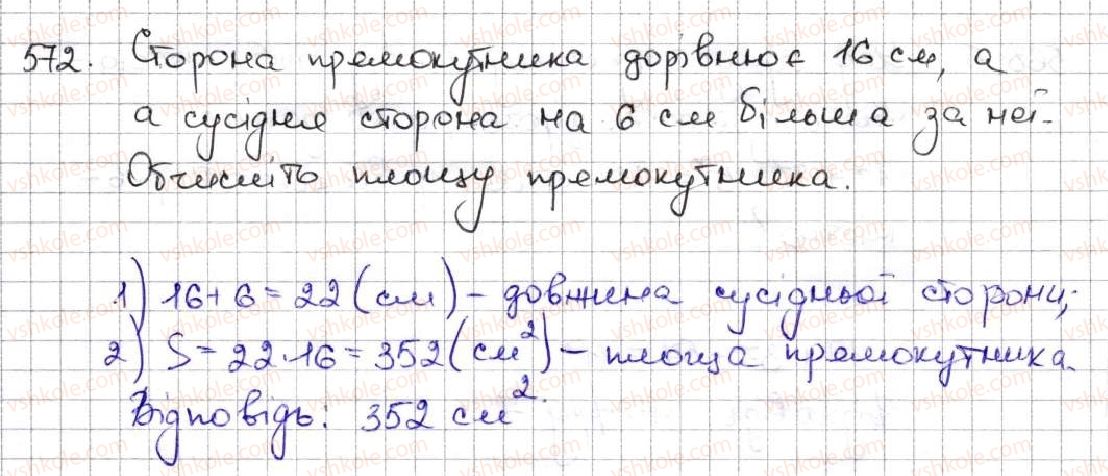 572. Сторона прямокутника дорівнює 16 см, а
а сусідня сторона на 6 см більша за неї.
Обчисліть площу прямокутника.
1) 16 + 6 = 22 (см) – довжина сусідньої сторони;
2) S = 22 · 16 = 352 (см²) – площа прямокутника.
Відповідь: 352 см².